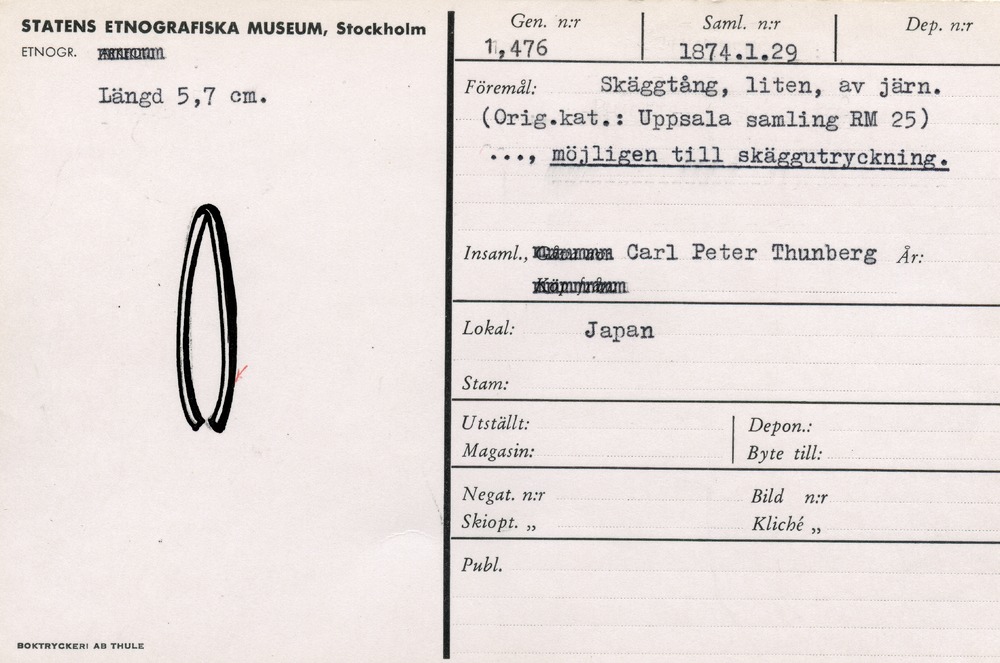 STATENS ETNOGRAFISKA MUSEUM, Stockholm
ETNOGR.
Längd 5,7 cm.
BOKTRYCKERI AB THULE
Gen. n:r
1,476
Saml. n:r
1874.1.29
Dep. n:r
Föremål: Skäggtång, liten, av järn.
(Orig.kat.: Uppsala samling RM 25)
..., möjligen till skäggutryckning.
Insaml., Carl Peter Thunberg År:
Lokal: Japan
Stam:
Utställt: Depon.:
Magasin: Byte till:
Negat. n:r Bild n:r
Skiopt. „ Kliché „
Publ.